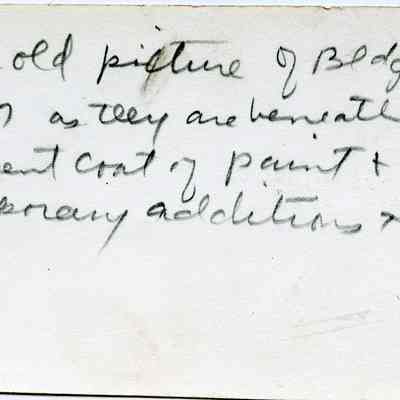 old picture of Bldg
as they are beneath
ent coat of paint +
porary additions